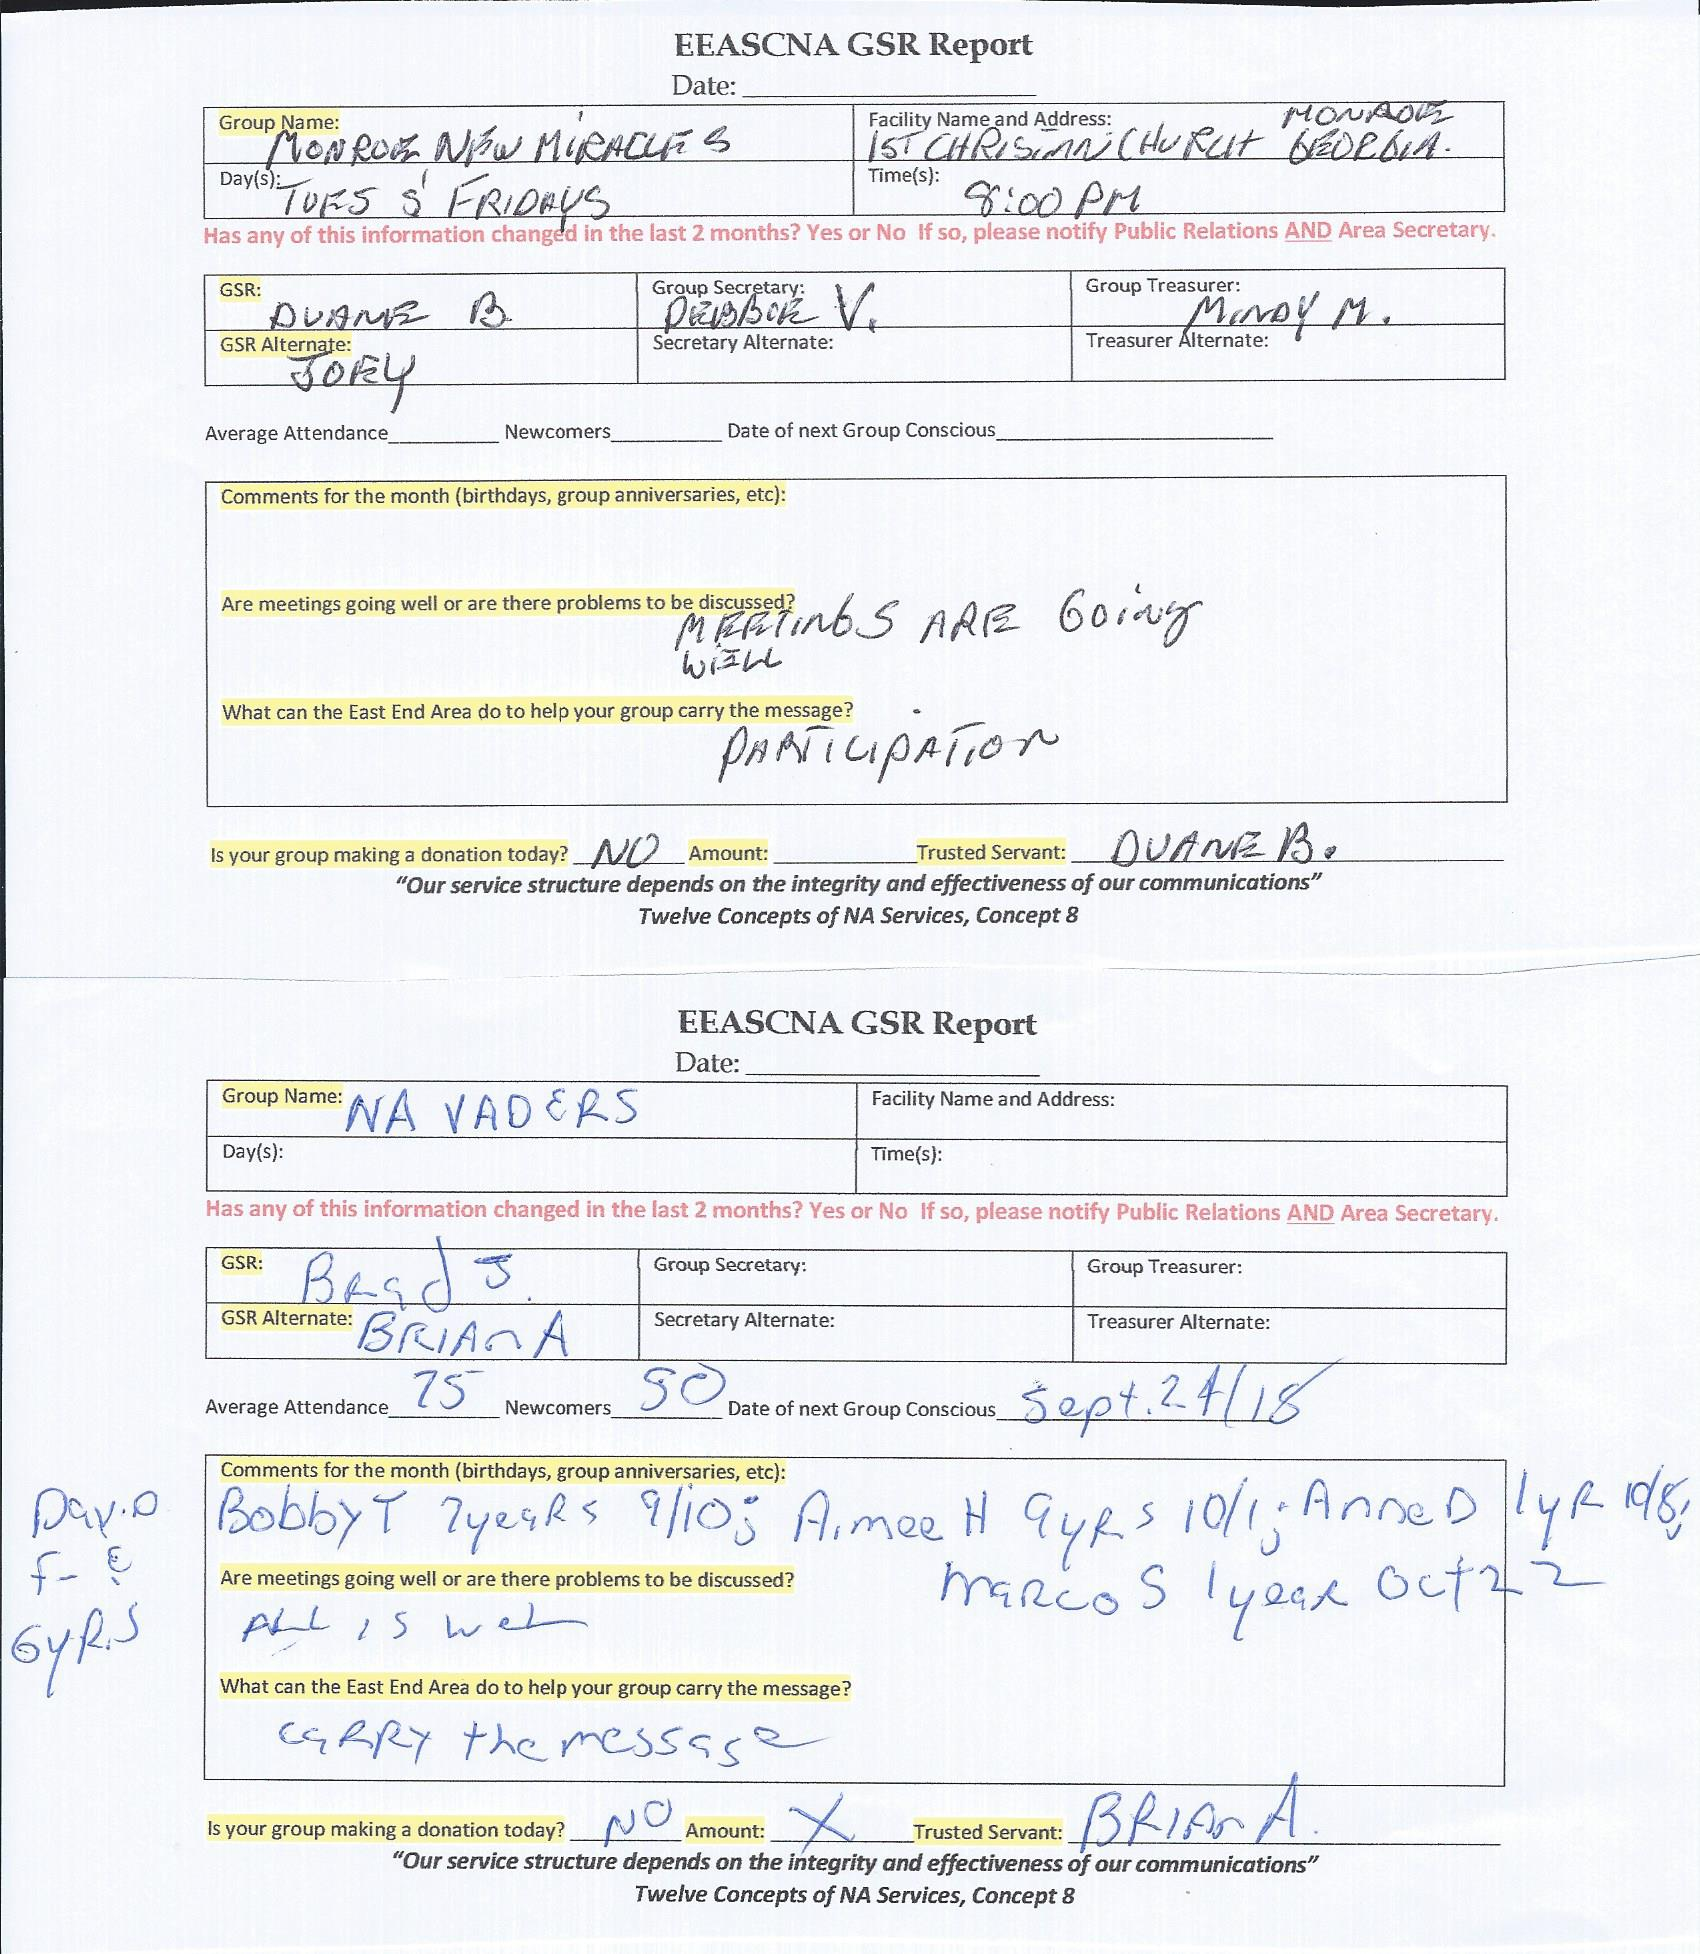 EEASCNA GSR Report
Date:
Group Name: MONROE NEW MIRACLES
Facility Name and Address: MONROE
1ST CHRISTIAN CHURCH GEORGIA.
Day(s): TUES & FRIDAYS
Time(s): 8:00 PM
Has any of this information changed in the last 2 months? Yes or No If so, please notify Public Relations AND Area Secretary.
GSR: DUANE B.
Group Secretary: DEBBIE V.
Group Treasurer: MINDY M.
GSR Alternate: JOEY
Secretary Alternate:
Treasurer Alternate:
Average Attendance Newcomers Date of next Group Conscious
Comments for the month (birthdays, group anniversaries, etc):
Are meetings going well or are there problems to be discussed?
MEETINGS ARE GOING
WELL
What can the East End Area do to help your group carry the message?
PARTICIPATION
Is your group making a donation today? NO Amount: Trusted Servant: DUANE B.
“Our service structure depends on the integrity and effectiveness of our communications”
Twelve Concepts of NA Services, Concept 8
EEASCNA GSR Report
Date:
Group Name: NA VADERS
Facility Name and Address:
Day(s):
Time(s):
Has any of this information changed in the last 2 months? Yes or No If so, please notify Public Relations AND Area Secretary.
GSR: Brad J.
Group Secretary:
Group Treasurer:
GSR Alternate: BRIAN A
Secretary Alternate:
Treasurer Alternate:
Average Attendance 75 Newcomers 50 Date of next Group Conscious Sept. 24/18
Comments for the month (birthdays, group anniversaries, etc):
Bobby T 7 years 9/10; Aimee H 9 yrs 10/1; Anne D 1 yR 10/8;
Marco S 1 year Oct 22
David
F-
6 yRS
Are meetings going well or are there problems to be discussed?
ALL IS well
What can the East End Area do to help your group carry the message?
caRRY the message
Is your group making a donation today? NO Amount: X Trusted Servant: BRIAN A.
“Our service structure depends on the integrity and effectiveness of our communications”
Twelve Concepts of NA Services, Concept 8